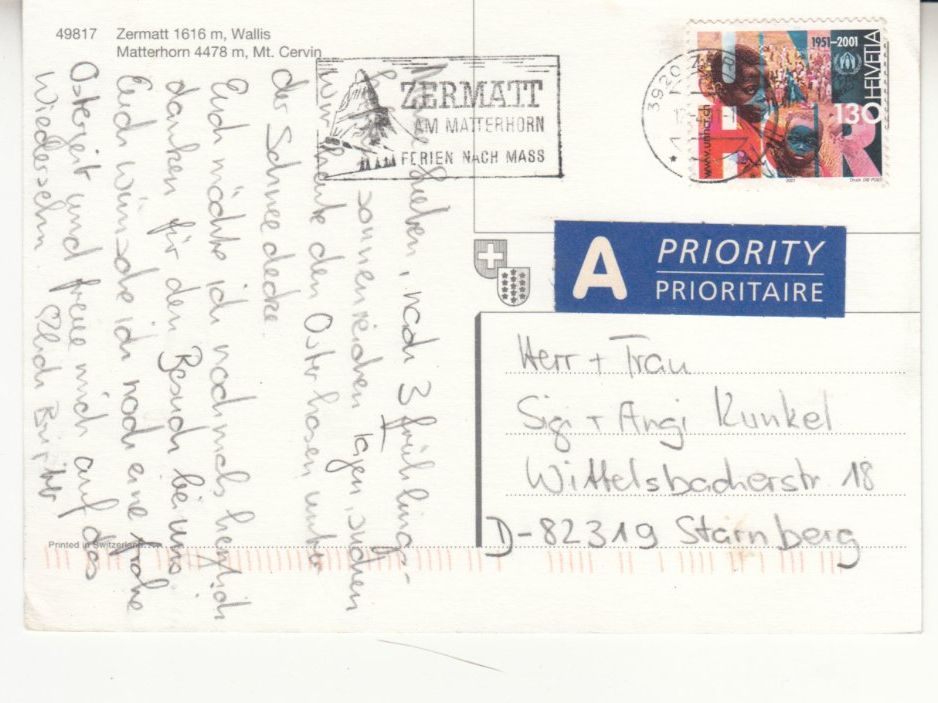 49817 Zermatt 1616 m, Wallis
Matterhorn 4478 m, Mt. Cervin
ZERMATT
AM MATTERHORN
FERIEN NACH MASS
3920 Z
1951–2001
HELVETIA
130
www.unhcr.ch
HCR
2001
A PRIORITY
PRIORITAIRE
Lieben, nach 3 frühlings-
sonnenreichen Tagen, suchen
wir heute den Osterhasen unter
der Schneedecke.
Euch möchte ich nochmals herzlich
danken für den Besuch bei uns.
Euch wünsche ich noch eine frohe
Osterzeit und freue mich auf das
Wiedersehn
Herr + Frau
Sigi + Angi Kunkel
Wittelsbacherstr 18
D-82319 Starnberg
Printed in Switzerland